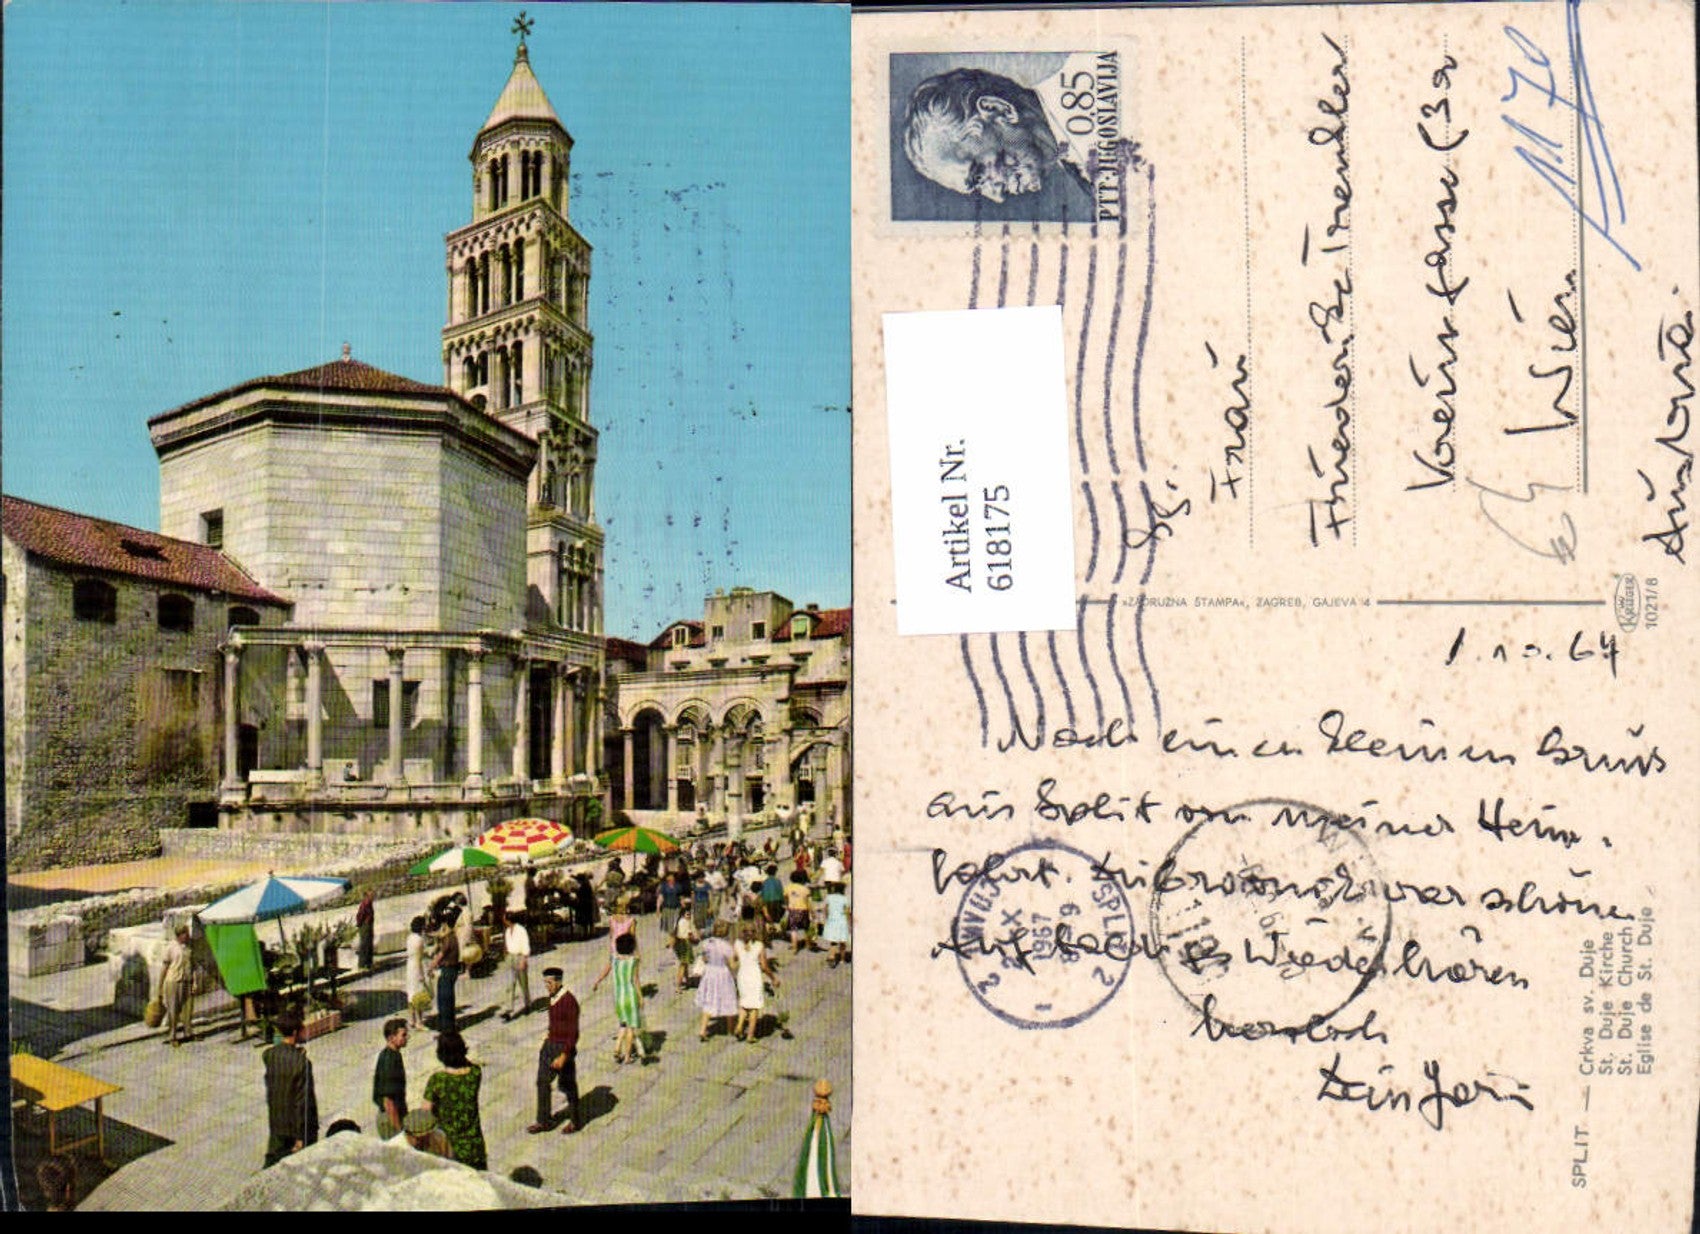 0.85
PTT·JUGOSLAVIJA
Artikel Nr.
618175
Frau
Friederike
Wien
1170
Austria
»ZADRUŽNA ŠTAMPA«, ZAGREB, GAJEVA 4
KRÜGER
1021/8
1.10.67
Nach einen kleinen Gruß
aus Split von meiner Heim-
fahrt. Dubrovnik war schön.
Auf bald Wiederhören
herzlich
Dein
SPLIT
2
IX
1967
SPLIT — Crkva sv. Duje
St. Duje Kirche
St. Duje Church
Eglise de St. Duje